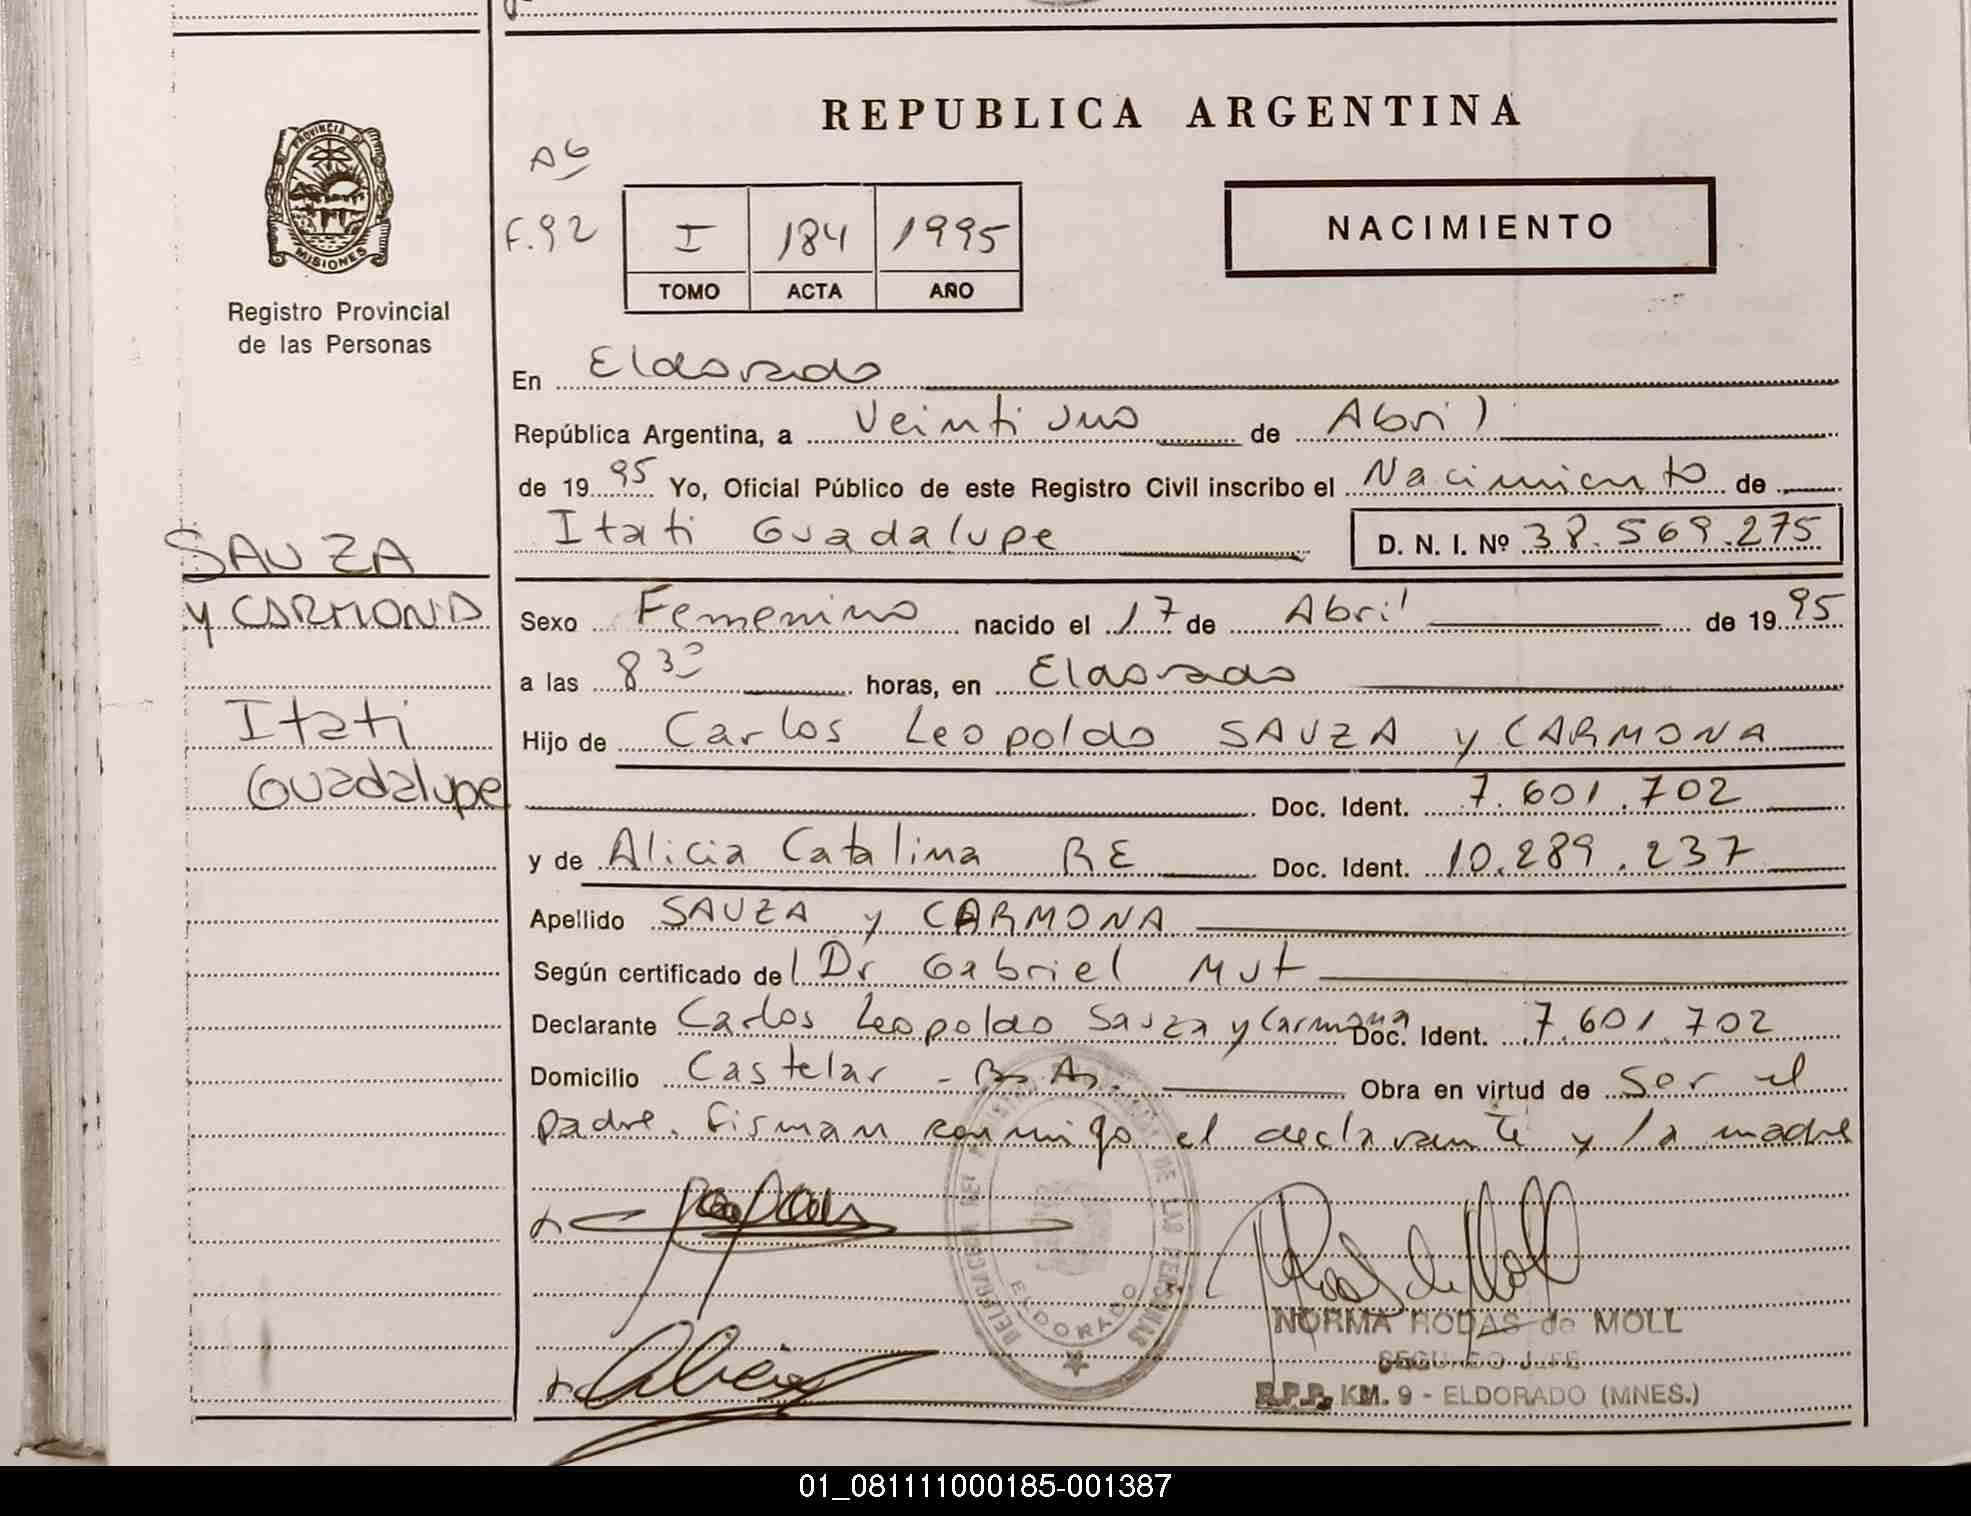 REPUBLICA ARGENTINA
PROVINCIA DE
MISIONES
Registro Provincial
de las Personas
A6
F.92
I 184 1995
TOMO ACTA AÑO
NACIMIENTO
En Eldorado
República Argentina, a Veintiuno de Abril
de 1995 Yo, Oficial Público de este Registro Civil inscribo el Nacimiento de
Itati Guadalupe D. N. I. Nº 38.569.275
SAUZA
y CARMONA
Itati
Guadalupe
Sexo Femenino nacido el 17 de Abril de 1995
a las 8 30 horas, en Eldorado
Hijo de Carlos Leopoldo SAUZA y CARMONA
Doc. Ident. 7.601.702
y de Alicia Catalina RE Doc. Ident. 10.289.237
Apellido SAUZA y CARMONA
Según certificado del Dr Gabriel Mut
Declarante Carlos Leopoldo Sauza y Carmona Doc. Ident. 7.601.702
Domicilio Castelar - Bs As. Obra en virtud de ser el
padre. Firman conmigo el declarante y la madre
DE LAS PERSONAS
ELDORADO
NORMA RODAS de MOLL
SEGUNDO JEFE
R.P.P. KM. 9 - ELDORADO (MNES.)
01_081111000185-001387